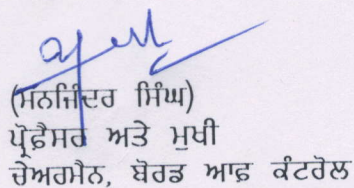 (ਮਨਜਿੰਦਰ ਸਿੰਘ)
ਪ੍ਰੋਫ਼ੈਸਰ ਅਤੇ ਮੁਖੀ
ਚੇਅਰਮੈਨ, ਬੋਰਡ ਆਫ਼ ਕੰਟਰੋਲ